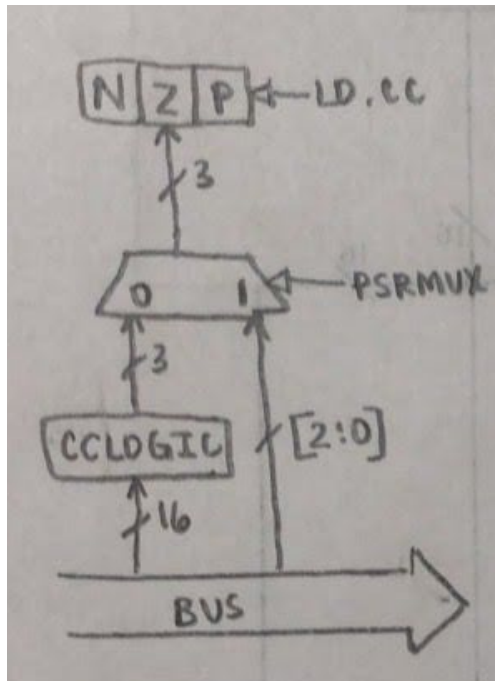 N Z P LD.CC
3
0 1 PSRMUX
3
CCLOGIC [2:0]
16
BUS